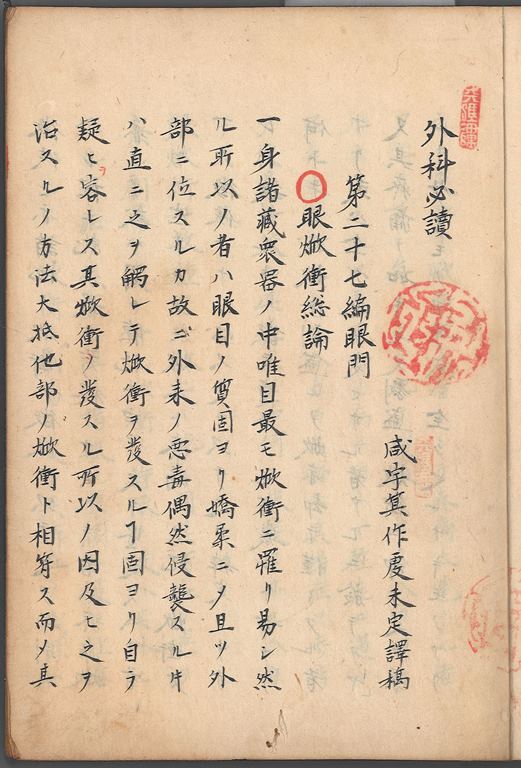 外科必讀
第二十七編眼門
咸宇箕作虔未定譯稿
眼焮衝総論
一身諸蔵衆器ノ中唯目最モ焮衝ニ罹リ易シ然
ル所以ノ者ハ眼目ノ質固ヨリ嬌柔ニメ且ツ外
部ニ位スルカ故ニ外来ノ悪毒偶然侵襲スルキ
ハ直ニ之ヲ觸レテ焮衝ヲ發スルヿ固ヨリ自ラ
疑ヒヲ容レス其焮衝ノ發スル所以ノ因及ヒ之ヲ
治スルノ方法大抵他部ノ焮衝ト相符ス而メ其